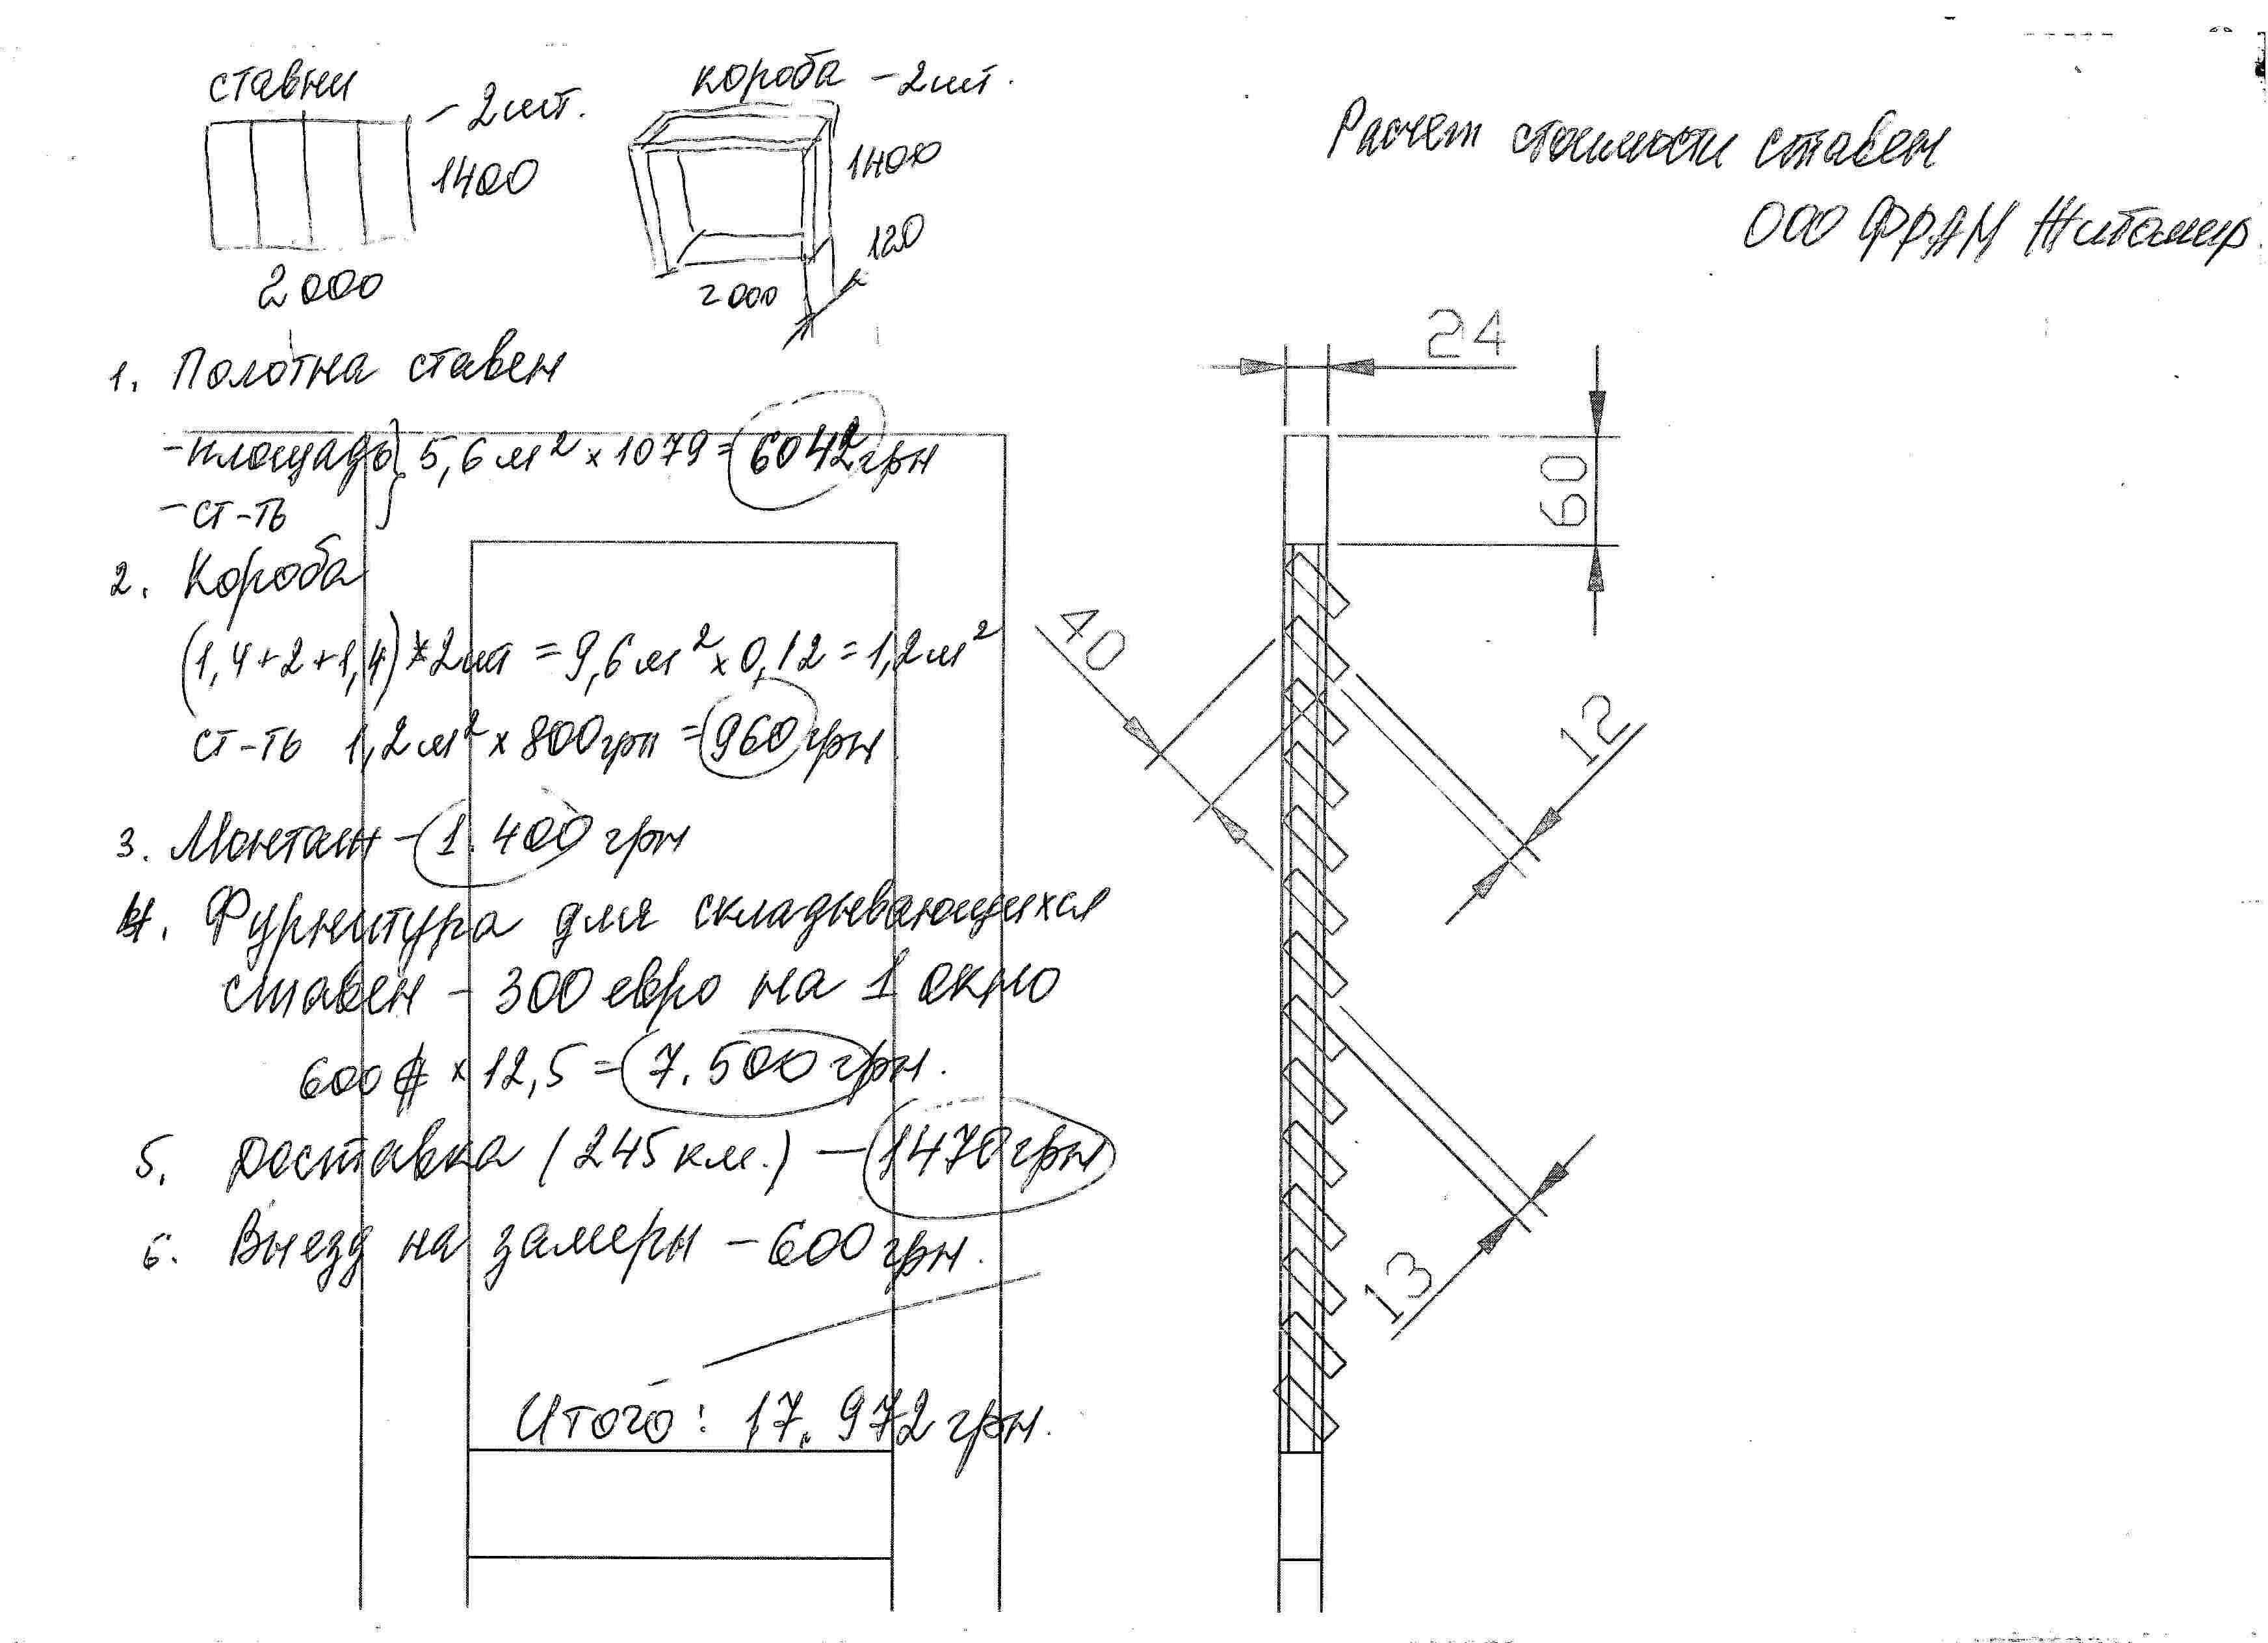 ставни
- 2шт.
1400
2000
короба - 2шт.
1400
120
2000
Расчет стоимости ставен
ООО ФРАМ Житомир.
1. Полотна ставен
- площадь } 5,6 м² х 1079 = 6042 грн
- ст-ть
2. Короба
(1,4 + 2 + 1,4) * 2шт = 9,6 м² х 0,12 = 1,2 м²
ст-ть 1,2 м² х 800 грн = 960 грн
3. Монтаж - 1.400 грн
4. Фурнитура для складывающихся
ставен - 300 евро на 1 окно
600 х 12,5 = 7.500 грн.
5. Доставка (245 км.) - 1470 грн
6. Выезд на замеры - 600 грн.
Итого: 17.972 грн.
24
60
40
12
13